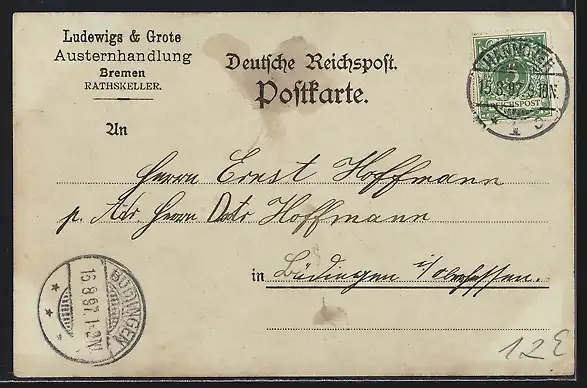 Ludewigs & Grote
Austernhandlung
Bremen
RATHSKELLER.
Deutsche Reichspost.
Postkarte.
HANNOVER
15.8.97. 9-10N.
REICHSPOST
An
Herrn Ernst Hoffmann
p. Adr. Herrn Hoffmann
in Büdingen i/Oberhessen.
BÜDINGEN
16.8.97.1-2N.
12E